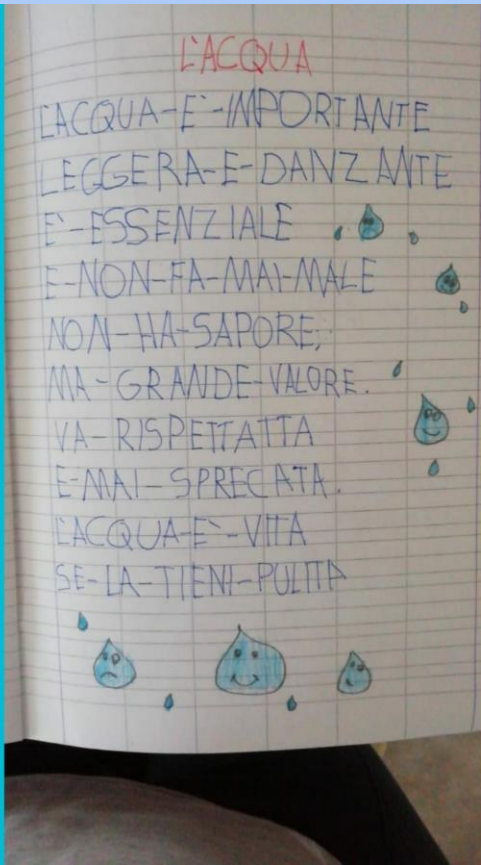 L'ACQUA
L'ACQUA-E`-IMPORTANTE
LEGGERA-E-DANZANTE
E`-ESSENZIALE
E-NON-FA-MAI-MALE
NON-HA-SAPORE,
MA-GRANDE-VALORE.
VA-RISPETTATTA
E-MAI-SPRECATA.
L'ACQUA-E`-VITA
SE-LA-TIENI-PULITA